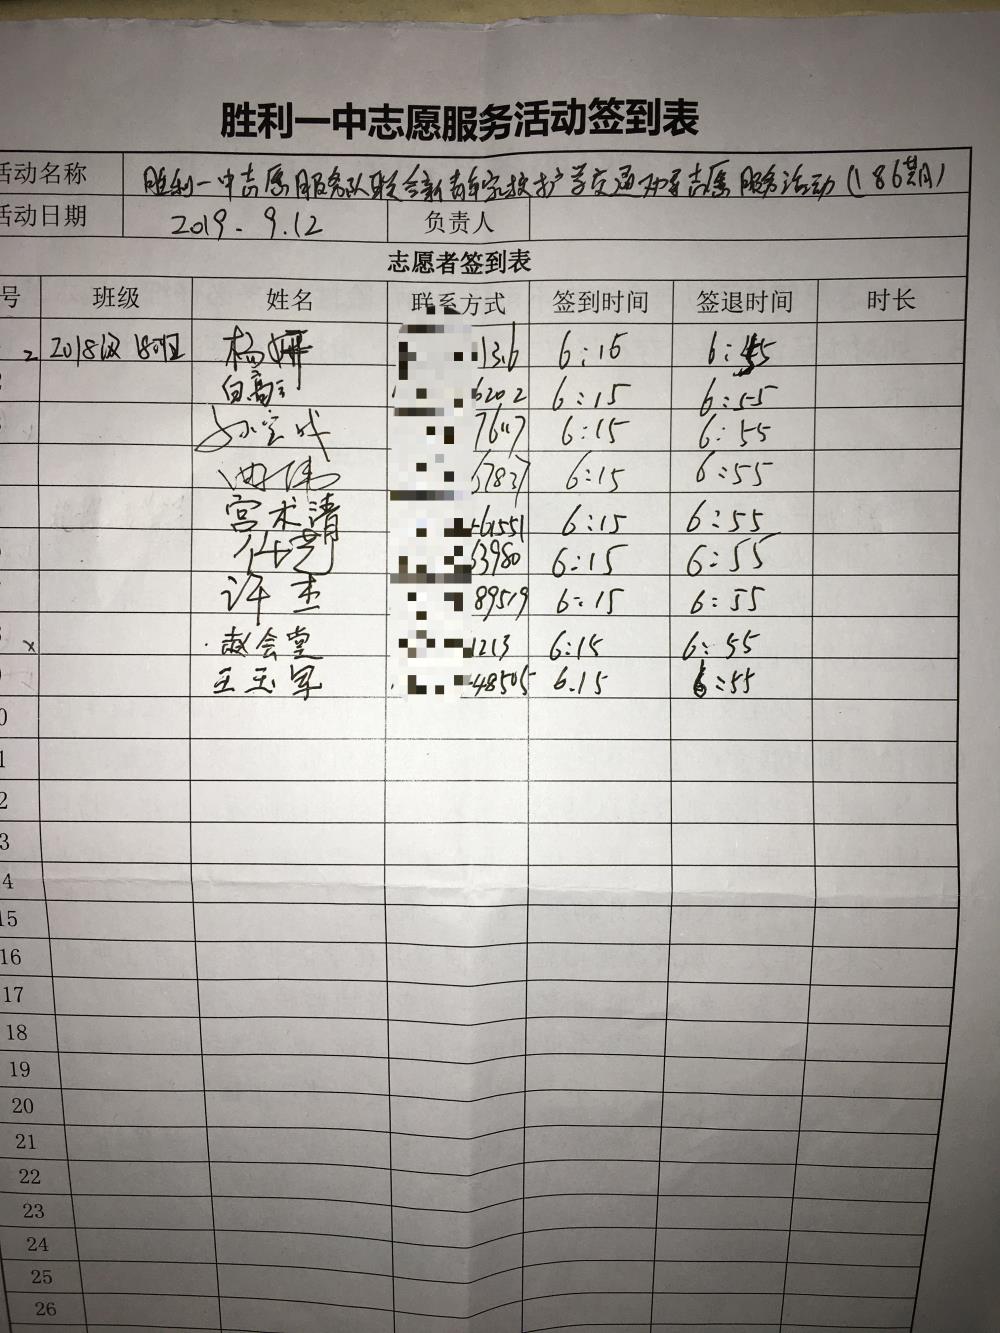 胜利一中志愿服务活动签到表
活动名称 胜利一中志愿服务队联合新青年家校护学交通劝导志愿服务活动(186期)
活动日期 2019.9.12 负责人
志愿者签到表
号 班级 姓名 联系方式 签到时间 签退时间 时长
2018级 杨妍 1316 6:16 6:55
白高 6202 6:15 6:55
7647 6:15 6:55
67837 6:15 6:55
宫术清 61551 6:15 6:55
53980 6:15 6:55
许杰 89519 6:15 6:55
x 赵会堂 1213 6:15 6:55
王玉军 48505 6.15 6:55
0
1
2
3
4
15
16
17
18
19
20
21
22
23
24
25
26